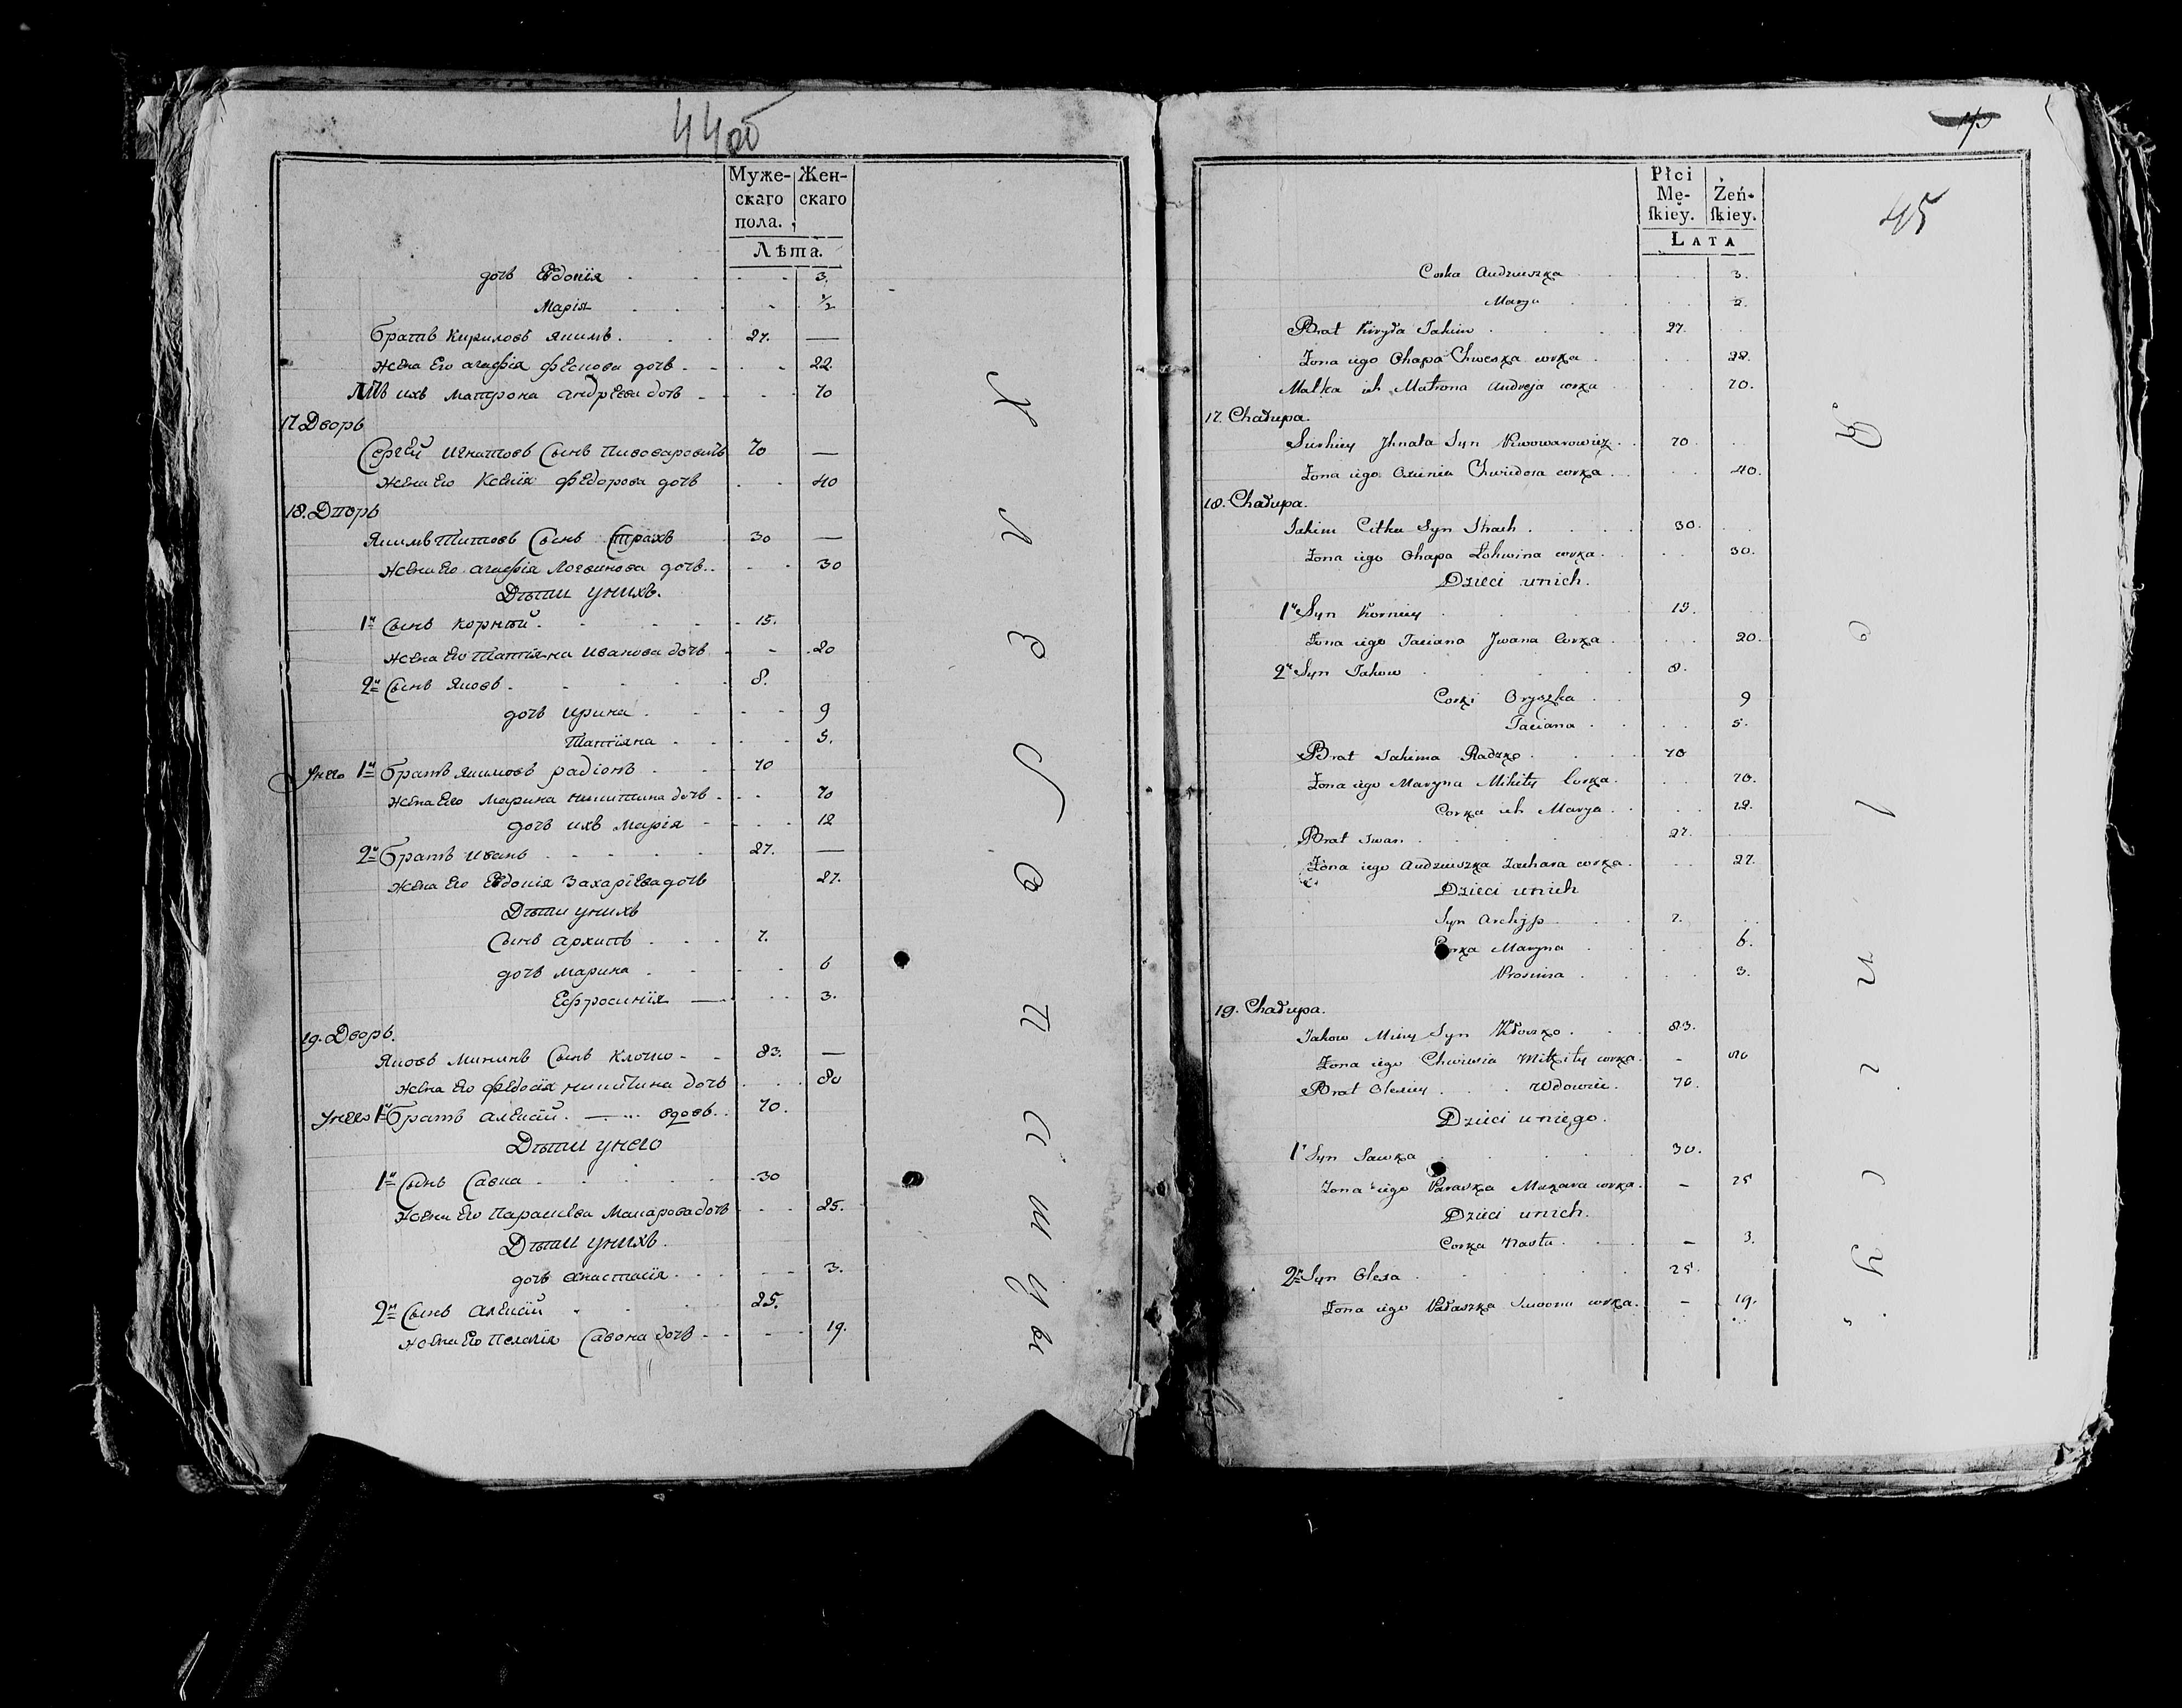 44об
Муже- Жен-
скаго скаго
пола.
Лѣта.
дочь Евдокія 3.
Марія ½
братъ Кириловъ Якимъ. 27. —
жена Его агафія фескова дочь 22.
Мать ихъ Матрона андрѣева дочь 70
17. Дворъ
Сергей Игнатовъ Сынъ Пивоваровичь 70 —
жена Его Ксенія федорова дочь 40
18. Дворъ
Якимъ Титовъ Сынъ Страхъ 30 —
жена Его агафія Логвинова дочь. 30
Дѣти у нихъ.
1й Сынъ Корнѣй. 15.
жена Его Татіяна Иванова дочь 20
2й Сынъ Яковъ. 8.
дочь Ирина 9
Татіяна 5.
У него 1й братъ Якимовъ радіонъ 70
жена Его Марина никитина дочь 70
дочь ихъ Марія 12
2й братъ Иванъ 27. —
жена Его Евдокія Захаріева дочь 27.
Дѣти у нихъ
Сынъ архипъ 7.
дочь Марина 6
Ефросинія 3.
19. Дворъ.
Яковъ Мининъ Сынъ Клочко 83. —
жена Его федосія никитина дочь 80
У него 1й братъ алексѣй. вдовъ. 70.
Дѣти у него
1й Сынъ Савка 30
жена Его Парасковѣя Макарова дочь 25.
Дѣти у нихъ.
дочь анастасія 3.
2й Сынъ алексѣй 25.
жена Его Пелагія Савона дочь 19.
45
Płci
Mę- Żeń-
ſkiey. ſkiey.
LATA
Corka Audziuszka 3.
Marya ½.
Brat Kiryła Jakim 27.
Żona iego Ohapa Chweska corka 22.
Matka ich Matrona Andreja corka 70.
17. Chałupa.
Sierhiey Jhnata Syn Piwowarowicz 70
Żona iego Oxienia Chwiedora corka 40.
18. Chałupa.
Jakim Citka Syn Strach 30.
Żona iego Ohapa Łohwina corka 30.
Dzieci u nich.
1y Syn Korniey 15.
Żona iego Taciana Jwana Corka 20.
2i Syn Jakow 8.
Corki Oryszka 9
Taciana 5.
Brat Jakima Radzko 70
Żona iego Maryna Mikity Corka 70.
Corka ich Marya 12.
Brat Jwan 27.
Żona iego Audziuszka Zachara corka 27.
Dzieci u nich
Syn Archip 7.
Corka Maryna 6.
Prosinia 3.
19. Chałupa.
Jakow Miny Syn Kłoczko 83.
Żona iego Chwiesia Mikity corka 80
Brat Olexiey Wdowiec 70.
Dzieci u niego.
1y Syn Sawka 30.
Żona iego Paraska Makara corka 25
Dzieci u nich.
Corka Nasta 3.
2i Syn Olexa 25.
Żona iego Pałaszka Sawona corka 19.